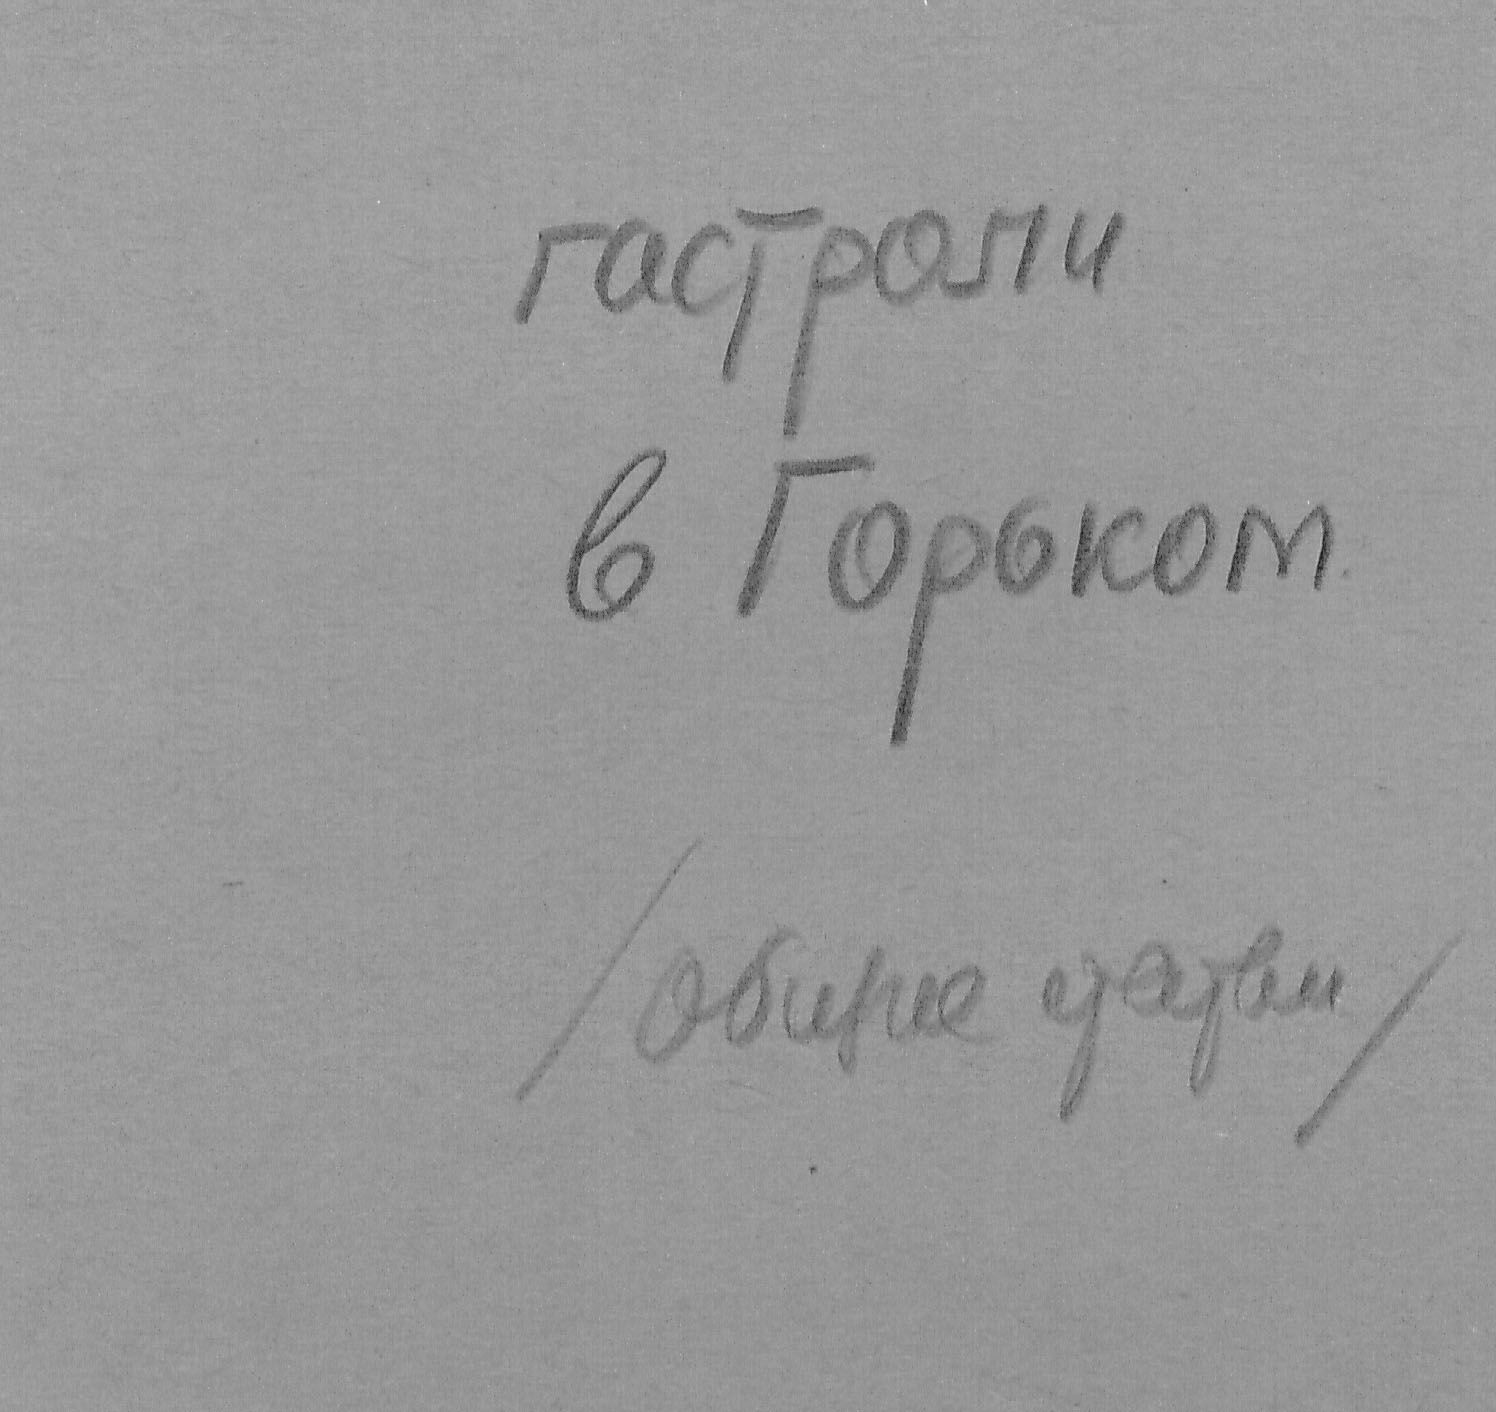 гастроли
в Горьком.
/общие статьи/